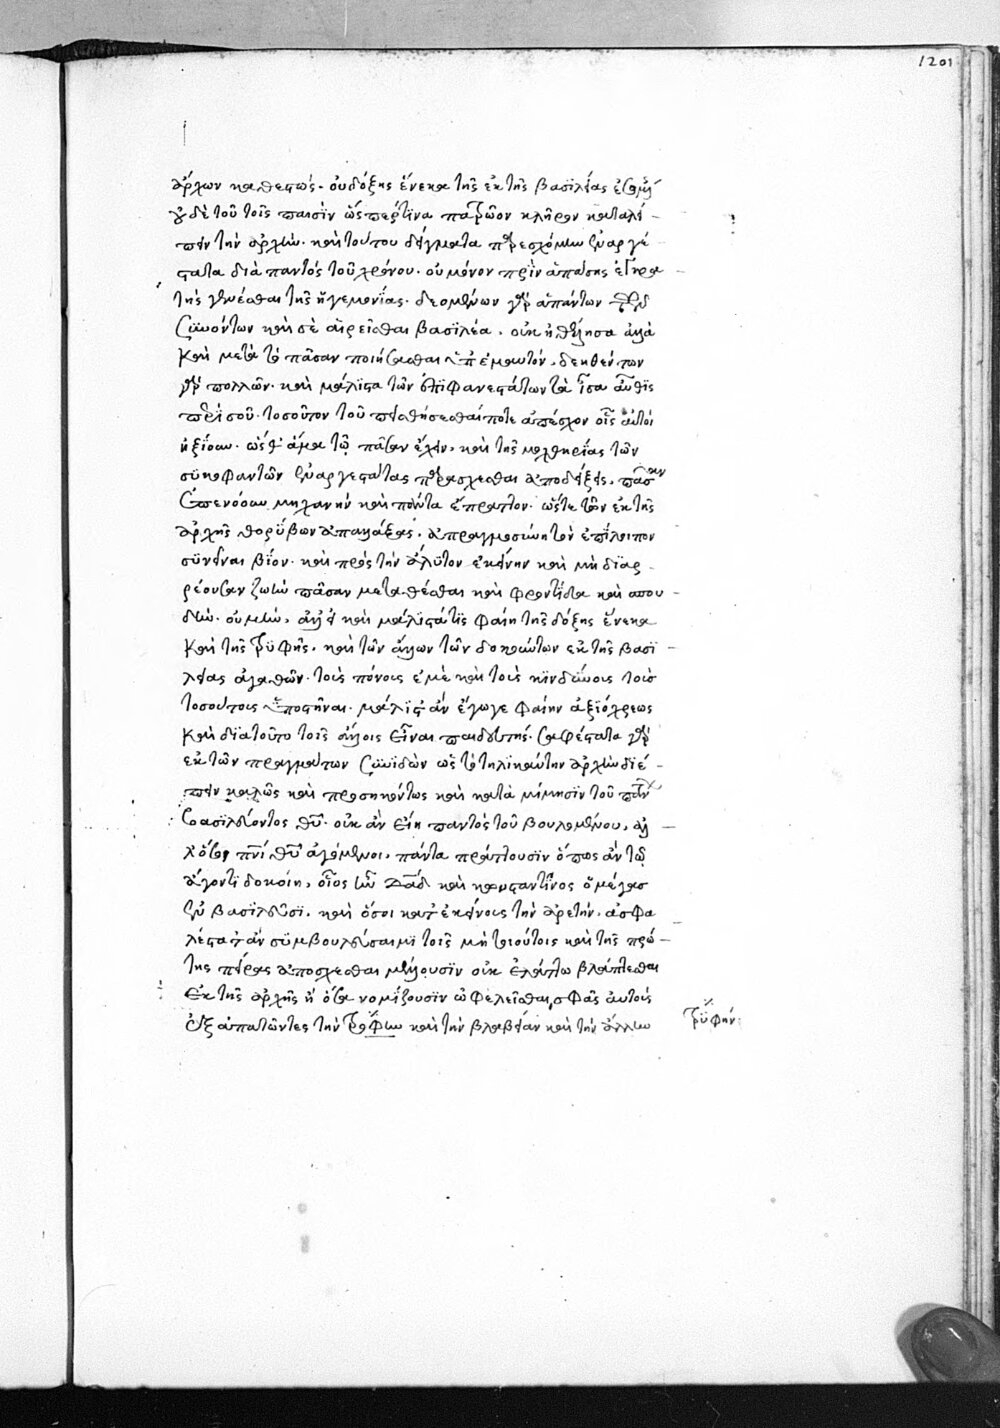 1201
ἄρχων καθεστώς. οὐ δόξης ἕνεκα τῆς ἐκ τῆς βασϊλείας
δὲ τοῦ τοῖς παισὶν ὥσπερ τινα πατρῷον κλῆρον καταλι
πεῖν τὴν ἀρχὴν. καὶ τούτου δείγματα παρεσχόμην ἐναργέ
στατα διὰ παντὸς τοῦ χρόνου. οὐ μόνον πρὶν ἁπάσης
τῆς γενέσθαι τῆς ἡγεμονίας. δεομένων γὰρ ἁπάντων
καὶ σὲ αἱρεῖσθαι βασϊλέα. οὐκ ἠθέλησα ἀλλὰ
καὶ μετὰ τὸ πᾶσαν ποιήσασθαι ὑπ' ἐμαυτόν. δεηθέντων
γὰρ πολλῶν. καὶ μάλιστα τῶν ἐπιφανεστάτων τὰ ἴσα αὖθϊς
περὶ σοῦ. τοσοῦτον τοῦ πεισθήσεσθαί ποτε ἀπέσχον οἷς αὐτοὶ
ἠξίουν. ὥσθ' ἅμα τῷ πᾶσαν ἔχειν, καὶ τῆς μοχθηρίας τῶν
συκοφαντῶν ἐναργεστάτας παρασχέσθαι ἀποδείξεις. πᾶσαν
ἐπενόουν μηχανὴν καὶ πάντα ἔπραττον. ὥστε τῶν ἐκ τῆς
ἀρχῆς θορύβων ἀπαλλάξας. ἀπραγμοσύνῃ τὸν ἐπίλοιπον
συνεῖναι βίον. καὶ πρὸς τὴν ἄλυτον ἐκείνην καὶ μὴ διαρ
ρέουσαν ζωὴν πᾶσαν μεταθέσθαι καὶ φροντίδα καὶ σπου
δὴν. οὐ μὴν, ἀλλ' εἰ καὶ μάλιστά τις φαίη τῆς δόξης ἕνεκα
καὶ τῆς τρυφῆς. καὶ τῶν ἄλλων τῶν δοκούντων ἐκ τῆς βασϊ
λείας ἀγαθῶν. τοῖς πόνοις ἐμὲ καὶ τοῖς κϊνδύνοις τοῖς
τοσούτοις ὑποστῆναι. μάλιστ' ἂν ἔγωγε φαίην ἀξιόχρεως
καὶ διὰ τοῦτο τοῖς ἄλλοις εἶναι παιδευτής. σαφέστατα γὰρ
ἐκ τῶν πραγμάτων συνιδὼν ὡς τὸ τηλικαύτην ἀρχὴν διέ
πειν καλῶς καὶ προσηκόντως καὶ κατὰ μίμησϊν τοῦ
βασϊλεύοντος θῦ. οὐκ ἂν εἴη παντὸς τοῦ βουλομένου. ἀλ
λ' ὅσοι πνὶ θῦ ἀγόμενοι. πάντα πράττουσϊν ὅπως ἂν τῷ
ἄγοντι δοκοίη, οἷος ἦν Δᾱδ καὶ κωνσταντῖνος ὁ μέγας
ἐν βασϊλεῦσϊ. καὶ ὅσοι κατ' ἐκείνους τὴν ἀρετὴν. ἀσφα
λέστατ' ἂν συμβουλεύσαιμϊ τοῖς μὴ τοιούτοις καὶ τῆς πρώ
της πείρας ἀποσχέσθαι μέλλουσϊν οὐκ ἐλάττω βλάπτεσθαι
ἐκ τῆς ἀρχῆς ἢ ὅσα νομίζουσϊν ὠφελεῖσθαι, σφᾶς αὐτοὺς
ἐξαπατῶντες τὴν τροφὴν καὶ τὴν βλακείαν καὶ τὴν ἄλλην
τρϋφήν: